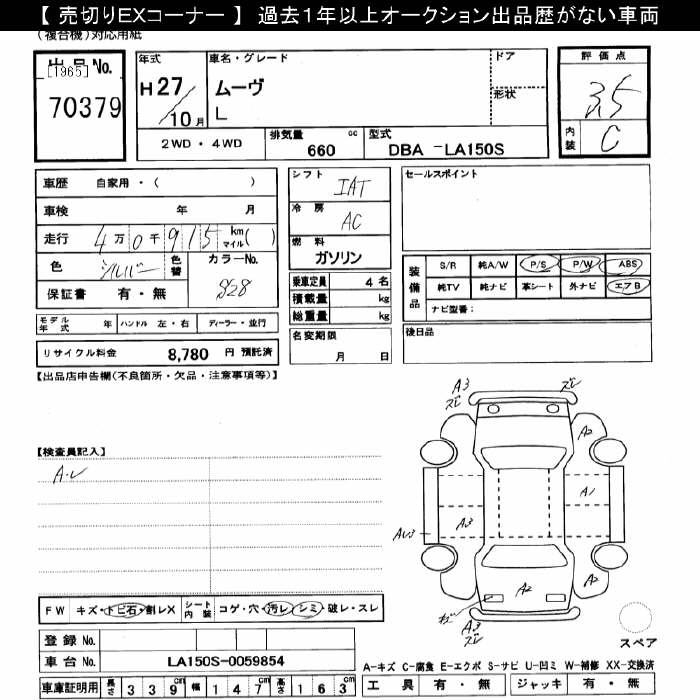 【 売切りEXコーナー 】 過去1年以上オークション出品歴がない車両
(複合機)対応用紙
出品 No.
[1965]
70379
年式
H 27
10 月
車名・グレード
ムーヴ
L
ドア
形状
評価点
3.5
内装
C
2WD ・ 4WD
排気量
cc
660
型式
DBA -LA150S
車歴 自家用・( )
車検 年 月
走行 4万0千915 km マイル( )
色 シルバー 色替 カラーNo. S28
保証書 有・無
シフト
IAT
冷房
AC
燃料
ガソリン
乗車定員 4 名
積載量 kg
総重量 kg
セールスポイント
装備品
S/R 純A/W P/S P/W ABS
純TV 純ナビ 革シート 外ナビ エアB
ナビ型番:
モデル年式 年 ハンドル 左・右 ディーラー・並行
名変期限
月 日
後日品
リサイクル料金 8,780 円 預託済
【出品店申告欄(不良箇所・欠品・注意事項等)】
A3
ズレ
ズレ
A2
【検査員記入】
A・レ
A1
A3
AU3
A2
A2
A3
ズレ
FW キズ・トビ石・割レX シート内装 コゲ・穴・汚レ・シミ・破レ・スレ
スペア
登録 No.
車台 No. LA150S-0059854
A-キズ C-腐食 E-エクボ S-サビ U-凹ミ W-補修 XX-交換済
車庫証明用 長さ 339 cm 幅 147 cm 高さ 163 cm
工具 有・無 ジャッキ 有・無